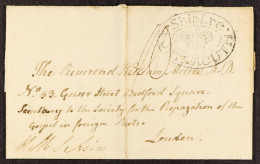 SHIP LRE
CALCUTTA
The Reverend William
No. 53 Gower Street Bedford Square
Secretary to the Society for the Propagation of the
Gospel in foreign Parts
London.